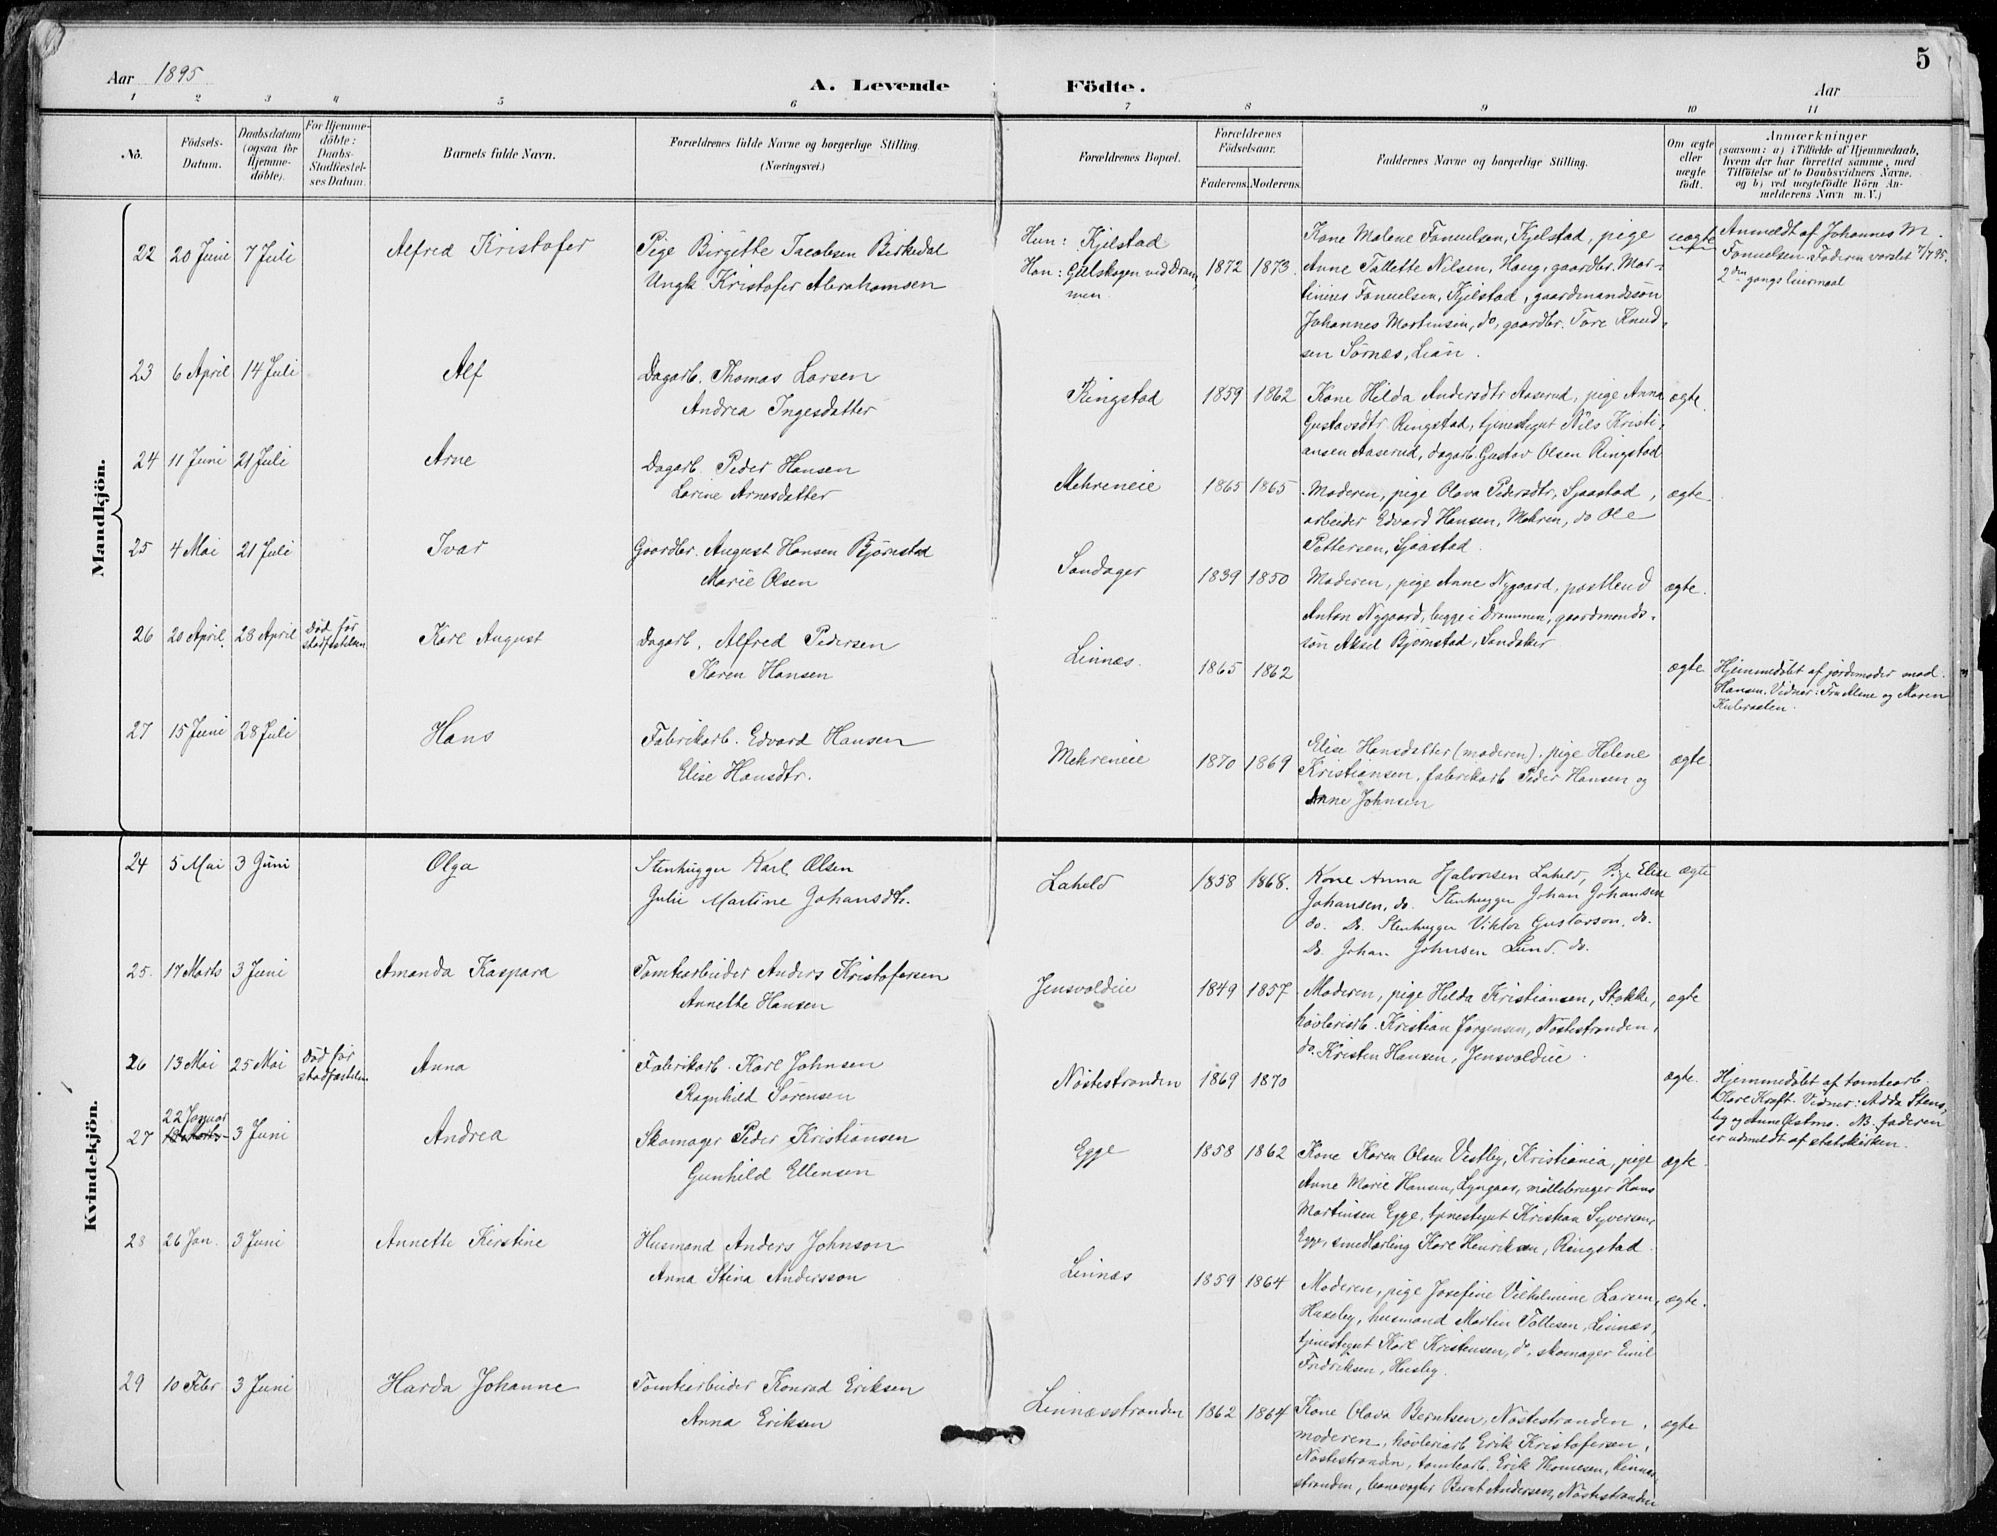 5
Aar 1895
A. Levende Födte.
Aar
1 2 3 4 5 6 7 8 9 10 11
No.
Födsels-
Datum.
Daabsdatum
(ogsaa for
Hjemme-
döbte).
For Hjemme-
döbte:
Daabs-
Stadfæstel-
ses Datum.
Barnets fulde Navn.
Forældrenes fulde Navne og borgerlige Stilling.
(Næringsvei.)
Forældrenes Bopæl.
Forældrenes
Födselsaar.
Faderens. Moderens.
Faddernes Navne og borgerlige Stilling.
Om ægte
eller
uægte
födt.
Anmærkninger
(saasom: a) i Tilfælde af Hjemmedaab,
hvem der har forrettet samme, med
Tilföielse af to Daabsvidners Navne.
og b) ved uægtefödte Börn An-
melderens Navn m. V.)
Mandkjön.
22 20 Juni 7 Juli
Alfred Kristofer
Pige Birgitte Jacobsen Birkedal
Ungk Kristofer Abrahamsen
Hun: Kjelstad
Han: Gulskogen ved Dram,
men.
1872 1873.
Kone Malene Fonuelsen, Kjelstad, pige
Anne Tallette Nilsen, Haug, gaardbr. Mar-
tinius Fonuelsen, Kjelstad, gaardmandssøn
Johannes Martinsen, do, gaardbr. Tore Knud-
sen Sørnæs, Lian.
uægte
Anmeldt af Johannes M.
Fonuelsen. Faderen vorslet 7/7 95.
2den gangs leiermaal
23 6 April 14 Juli
Alf
Dagarb. Thomas Larsen
Andrea Ingesdatter
Ringstad
1859 1862
Kone Hilda Andersdtr Aaserud, pige Anna
Gustavsdtr. Ringstad, tjenestegut Nils Kristi-
ansen Aaserud, dagarb. Gustav Olsen Ringstad
ægte.
24 11 Juni 21 Juli
Arne
Dagarb. Peder Hansen
Larine Arnesdatter
Mehreneie
1865 1865
Moderen, pige Olava Pedersdtr, Sjaastad,
arbeider Edvard Hansen, Mehren, do Ole
Pettersen, Sjaastad.
ægte.
25 4 Mai 21 Juli
Ivar
Gaardbr. August Hansen Bjørnstad
Marie Olsen
Sandager
1839 1850
Moderen, pige Anne Nygaard, postbud
Anton Nygaard, begge i Drammen, gaardmands-
søn Aksel Bjørnstad, Sandaker
ægte.
26 20 April. 28 April
Død før
stadfæstelsen
Karl August
Dagarb. Alfred Pedersen
Karen Hansen
Linnæs.
1865 1862
ægte
Hjemmedøbt af jordemoder mad.
Hansen. Vidner: Fru Alene og Maren
Kuleraaen.
27 15 Juni 28 Juli
Hans
Fabrikarb. Edvard Hansen
Elise Hansdtr.
Mehreneie
1870 1869
Elise Hansdatter (moderen), pige Helene
Kristiansen, fabrikarb Peder Hansen og
Anne Johnsen
ægte.
Kvindekjön.
24 5 Mai 3 Juni
Olga
Stenhugger Karl Olsen
Julie Martine Johansdtr.
Laheld
1858 1868.
Kone Anna Halvorsen Laheld, Pige Elise
Johansen, do. Stenhugger Johan Johansen
do. Do. Stenhugger Viktor Gustavson, do.
Do. Johan Johnsen Lund. do.
ægte
25. 17 Marts 3 Juni
Amanda Kaspara
Tomtearbeider Anders Kristofersen
Annette Hansen
Jensvoldeie
1849 1857
Moderen, pige Hilda Kristiansen, Stokke,
høvleriarb. Kristian Jørgensen, Nøstestranden,
do. Kristen Hansen, Jensvoldeie.
ægte
26 13 Mai 25 Mai
Død før
stadfæstelsen
Anna
Fabrikarb. Karl Johnsen
Ragnhild Sørensen
Nøstestranden
1869 1870
ægte.
Hjemmedøbt af tomtearb.
Olare Kraft. Vidner: Adda Stens
by og Anne Østmo. NB. faderen
er udmeldt af statskirken.
27 22 Januar 3 Juni
Andrea
Skomager Peder Kristiansen
Gunhild Ellensen
Egge
1858 1862
Kone Karen Olsen Vestby, Kristiania, pige
Anne Marie Hansen, Lyngaas, møllebruger Hans
Martinsen Egge, tjenestegut Kristian Syversen,
Egge, smedlærling Karl Henriksen, Ringstad.
ægte
28 26 Jan. 3 Juni
Annette Kirstine
Husmand Anders Johnson
Anna Stina Andersson
Linnæs
1859 1864
Moderen, pige Josefine Vilhelmine Larsen,
Huseby, husmand Martin Tollesen, Linnæs,
tjenestegut Karl Kristensen, do, skomager Emil
Fredriksen, Husby.
ægte.
29 10 Febr 3 Juni
Harda Johanne
Tomtearbeider Konrad Eriksen
Anna Eriksen
Linnæsstranden
1862 1864
Kone Olava Berntsen, Nøstestranden,
moderen, høvleriarb Erik Kristofersen,
Nøstestranden, tomtearb. Erik Thomesen, Linnæs-
stranden, banevogter Bernt Andersen, Nøstestranden
ægte